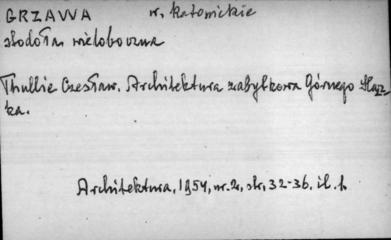 GRZAWA w. katowickie
stodoła wieloboczna
Thullie Czesław. Architektura zabytkowa Górnego Śląz-
ka.
Architektura, 1954, nr. 2, str. 32-36. il. 1